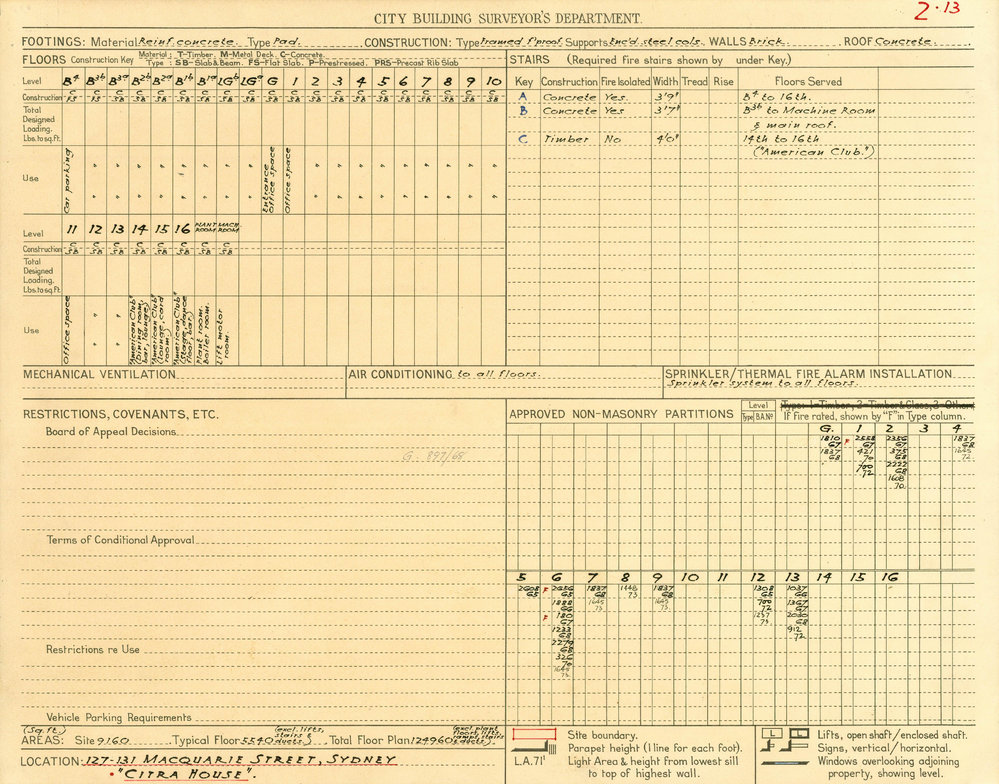 2·13
CITY BUILDING SURVEYOR'S DEPARTMENT.
FOOTINGS: Material Reinf. concrete. Type Pad. CONSTRUCTION: Type Framed f'proof. Supports Enc'd steel cols. WALLS Brick. ROOF Concrete.
FLOORS Construction Key Material: T-Timber. M-Metal Deck. C-Concrete.
Type: SB-Slab & Beam. FS-Flat Slab. P-Prestressed. PRS-Precast Rib Slab
Level B4 B3b B3a B2b B2a B1b B1a LGb LGa G 1 2 3 4 5 6 7 8 9 10
Construction C FS C FS C SB C SB C SB C SB C SB C SB C SB C SB C SB C SB C SB C SB C SB C SB C SB C SB C SB C SB
Total
Designed
Loading.
Lbs. to sq. ft.
Use
Car parking " " " " " " " " Entrance Office space Office space " " " " " " " " "
Level 11 12 13 14 15 16 PLANT ROOM MACH. ROOM
Construction C SB C SB C SB C SB C SB C SB C SB C SB
Total
Designed
Loading.
Lbs. to sq. ft.
Use
Office space " "
"American Club" (Dining room, bar, lounge)
"American Club" (lounge, card room)
"American Club" (Stage, dance floor, bar)
Plant room. Boiler room.
Lift motor room.
STAIRS (Required fire stairs shown by under Key.)
Key Construction Fire Isolated Width Tread Rise Floors Served
A Concrete Yes. 3'9" B4 to 16th.
B Concrete Yes 3'7" B3b to Machine Room
& main roof.
C Timber No 4'0" 14th to 16th
("American Club.")
MECHANICAL VENTILATION
AIR CONDITIONING to all floors.
SPRINKLER/THERMAL FIRE ALARM INSTALLATION
Sprinkler system to all floors.
RESTRICTIONS, COVENANTS, ETC.
Board of Appeal Decisions
G. 897/68
Terms of Conditional Approval
Restrictions re Use
Vehicle Parking Requirements
APPROVED NON-MASONRY PARTITIONS
Level
Type B.A.Nº
Type: 1-Timber, 2-Timber & Glass, 3-Other.
IF fire rated, shown by "F" in Type column.
G. 1 2 3 4
1810 67 F 2558 67 2356 67 1837 68
1837 68 421 70 375 68 1645 72
700 72 2222 68
1608 70
5 6 7 8 9 10 11 12 13 14 15 16
2608 65 F 2656 65 1837 68 1448 73 1837 68 1308 65 1037 66
1888 66 1645 73. 1645 73. 700 72 1367 67
F 180 67 1237 73. 2040 68
1233 68 912 72
2279 68
326 70
1645 73.
(Sq. ft.) (excl. lifts, stairs & ducts) (excl. plant floors, lifts, ramps, stairs & ducts)
AREAS: Site 9160 Typical Floor 5540 Total Floor Plan 124960
LOCATION: 127-131 MACQUARIE STREET, SYDNEY
"CITRA HOUSE".
Site boundary.
Parapet height (1 line for each foot).
L.A.71' Light Area & height from lowest sill
to top of highest wall.
L Lifts, open shaft/enclosed shaft.
Signs, vertical/horizontal.
Windows overlooking adjoining
property, showing level.